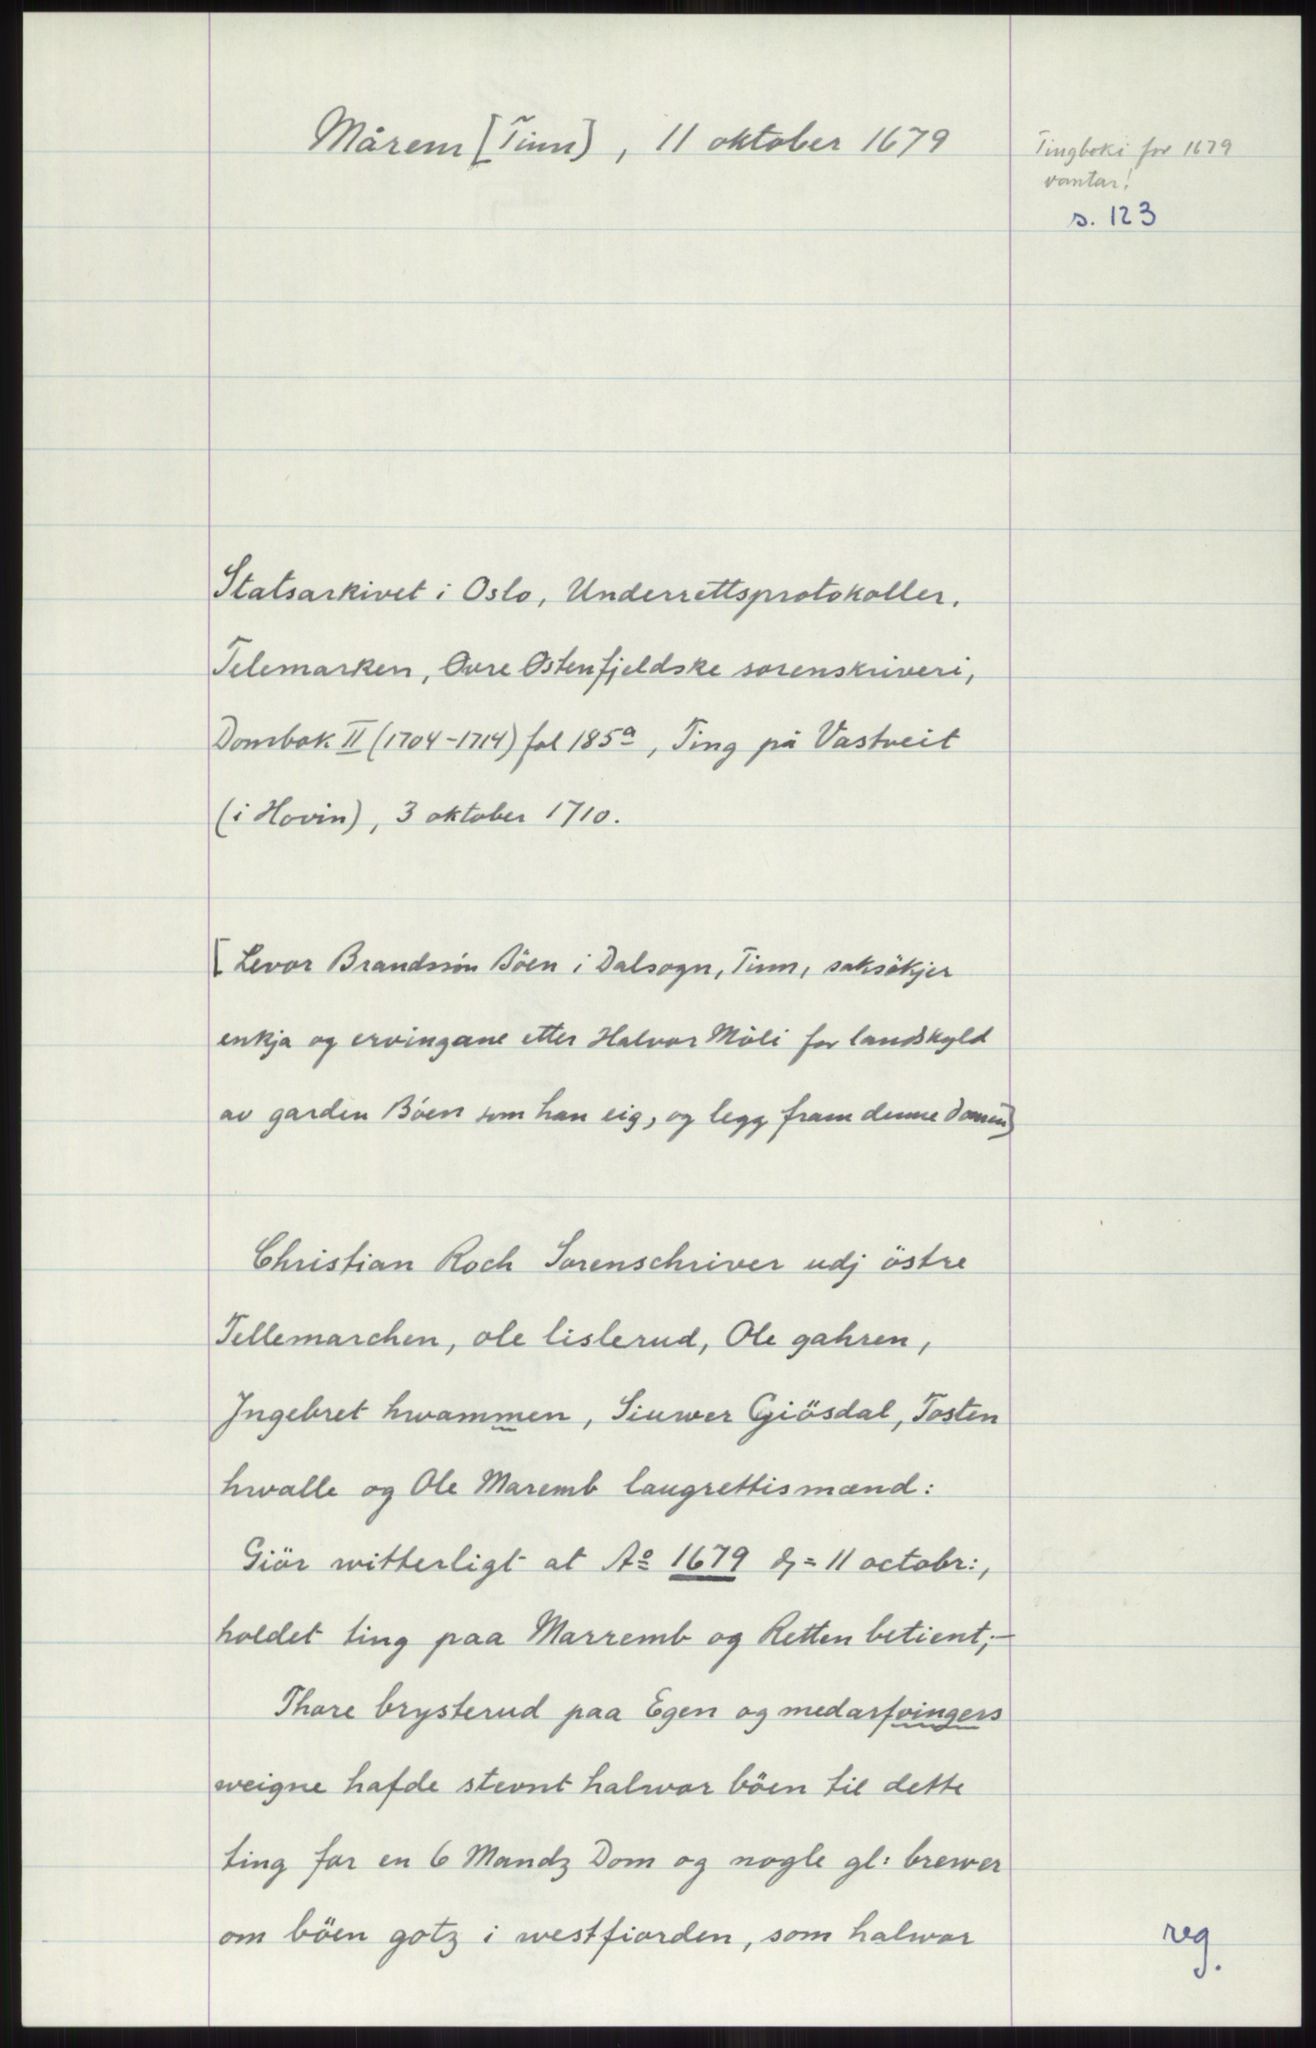 Mårem [Tinn], 11 oktober 1679
Tingboki for 1679
vantar!
s. 123
Statsarkivet i Oslo, Underrettsprotokoller.
Telemarken, Øvre Østenfjeldske sorenskriveri,
Dombok II (1704-1714) fol 185a, Ting på Vastveit
(i Hovin), 3 oktober 1710.
[Levor Brandssón Böen i Dalsogn, Tinn, saksökjer
enkja og ervingane etter Halvor Möli for landskyld
av garden Böen som han eig, og legg fram denne domen]
Christian Roch Sorenschriver udj östre
Tellemarchen, ole lislerud, Ole gahren,
Jngebret hwammen, Siuwer Giösdal, Tosten
hwalle og Ole Maremb laugrettismænd:
Giör witterligt at Ao 1679 d= 11 octobr:,
holdet ting paa Marremb og Retten betient;-
Thore brysterud paa Egen og medarfvingers
weigne hafde stevnt halwor böen til dette
ting for en 6 Mandz Dom og nogle gl: brewer
om böen gotz i westfiorden, som halwor
reg.